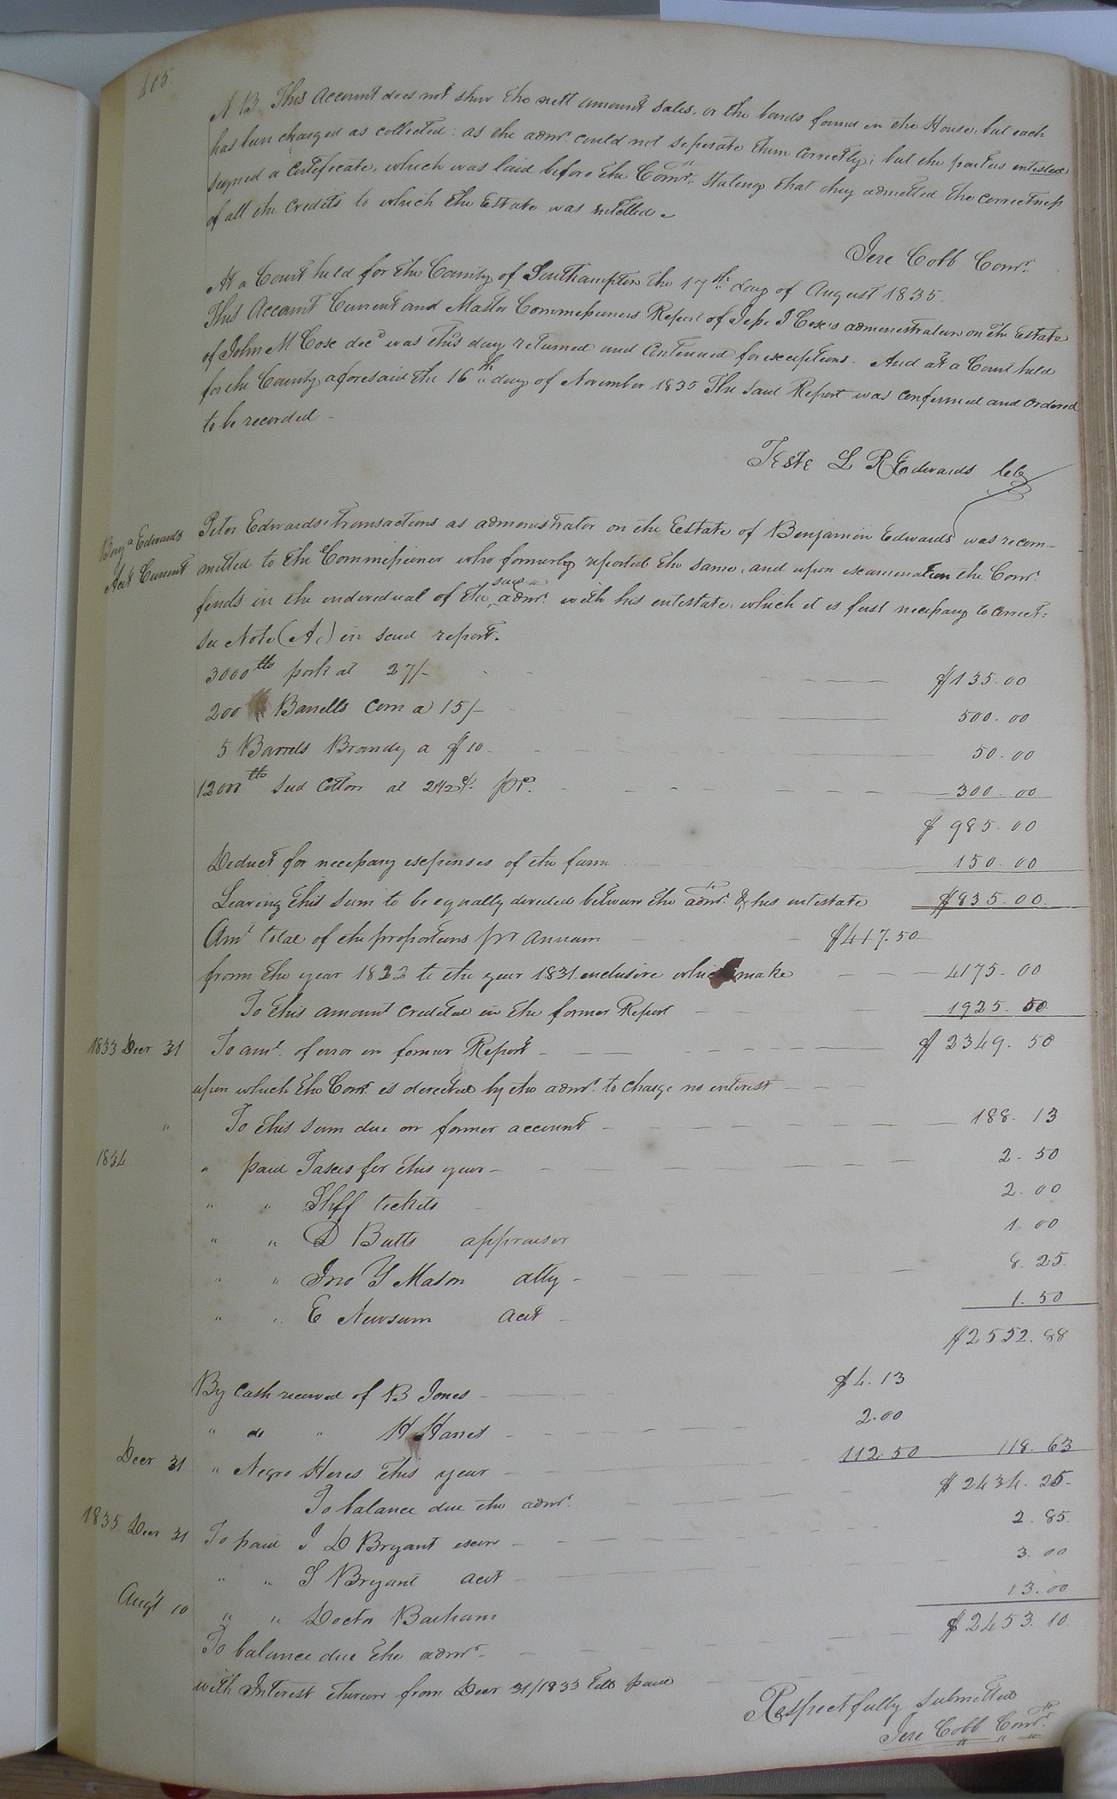 405
N B. This Account does not show the nett amount sales, or the bonds found in the House, but each
has been charged as collected: as the admr. could not seperate them correctly; but the parties intested
signed a certificate, which was laid before the Comr. stateing that they admitted the correctness
of all the credits to which the Estate was intitled.
Jere Cobb Comr.
At a Court held for the County of Southampton the 17th day of August 1835.
This Account Current and Master Commissioners Report of J. Cox's administration on the Estate
of John M Cox decd was this day returned and Continued for exceptions. And at a Court held
for the County aforesaid the 16th day of November 1835 The said Report was confirmed and ordered
to be recorded -
Teste L R Edwards Clk
Benja Edwards
Acct Current
Peter Edwards transactions as administrator on the Estate of Benjamin Edwards was recom-
mitted to the Commissioner who formerly reported the same, and upon examination the Comr.
finds in the individual of the said admr. with his intestate, which it is first necessary to correct:
see Note (A.) in said report.
3000 lbs pork at 27/- $135.00
200 Barrells Corn a 15/- 500.00
5 Barrels Brandy a $10 - 50.00
1200 lbs Seed Cotton at 2 1/2 cts. pr. 300.00
$985.00
Deduct for necessary expenses of the farm 150.00
Leaving this sum to be equally divided between the admr. & his intestate $835.00
Amt total of the proportions pr annum $417.50
from the year 1822 to the year 1831 inclusive which make 4175.00
To this amount credited in the former Report 1925.50
1833 Decr 31 To amt. of error in former Report - $2349.50
upon which the Comr. is directed by the admr. to charge no interest
" To this sum due on former account - 188.13
1834 " paid Taxes for this year - 2.50
" " Shff tickets 2.00
" " D Butts appraiser 1.00
" " Jno Y Mason atty - 8.25
" " E Newsum acct - 1.50
$2552.88
By Cash received of B Jones - $4.13
" do " H Harris - 2.00
Decr 31 " Negro Hires this year - 112.50 118.63
To balance due the admr. $2434.25
1835 Decr 31 To paid J D Bryant exor - 2.85
" " S Bryant acct - 3.00
Augt 10 " " Doctr Barham 13.00
To balance due the admr. - $2453.10
with Interest thereon from Decr 31/1833 till paid
Respectfully submitted
Jere Cobb Comr.